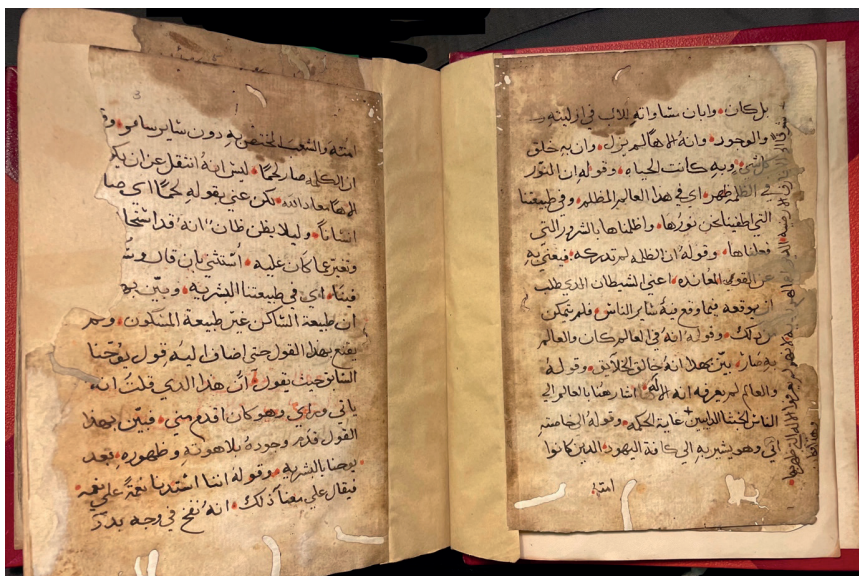 بل كان • وابان مساواته للاب في ازليته
والوجود • وانه الاهًا لم يزل • وان به خلق
كل شي • وبه كانت الحياه • وقوله ان النور
في الظلمه ظهر • اي في هذا العالم المظلم • وفي طبيعتنا
التي اطفينا نحن نورها • واظلمناها بالشرور التي
فعلناها • وقوله ان الظلمه لم تدركه • فيعني به
عن القوه المعانده • اعني الشيطان الذي طلب
ان يوقعه فيما وقع فيه ساير الناس • فلم يتمكن
من ذلك • وقوله انه في العالم كان والعالم
به صار • بين بهذا انه خالق الخلايق • وقوله
والعالم لم يعرفه انه الاله • اشار هنا بالعالم الي
الناس الخبثا غاية الحكمه • وقوله الي خاصته
اتي وهو يشير به الي كافة اليهود • الذين كانوا
امته
امته والشعب المختص به دون ساير
ان الكلمه صار لحمًا • ليس انه انتقل عن ان
الاهًا معاد الله • لكن عني بقوله لحمًا اي
انسانًا • وليلا يظن ظان • انه قد
وتغير عما كان عليه • استثني بان قال
فينا • اي في طبيعتنا البشريه • وبين
ان طبيعة الساكن غير طبيعة المسكون • ولم
يقنع بهذا القول حتي اضاف اليه قول يوحنا
السابق حيث يقول • ان هذا الدي قلت انه
ياتي وراي • وهو كان اقدم مني • فبين بهذا
القول قدم وجوده بلاهوته • وظهوره بعد
يوحنا بالبشريه • وقوله اننا نعمةً علي نعمه •
فيقال علي معنا ذلك • انه نفخ في وجه